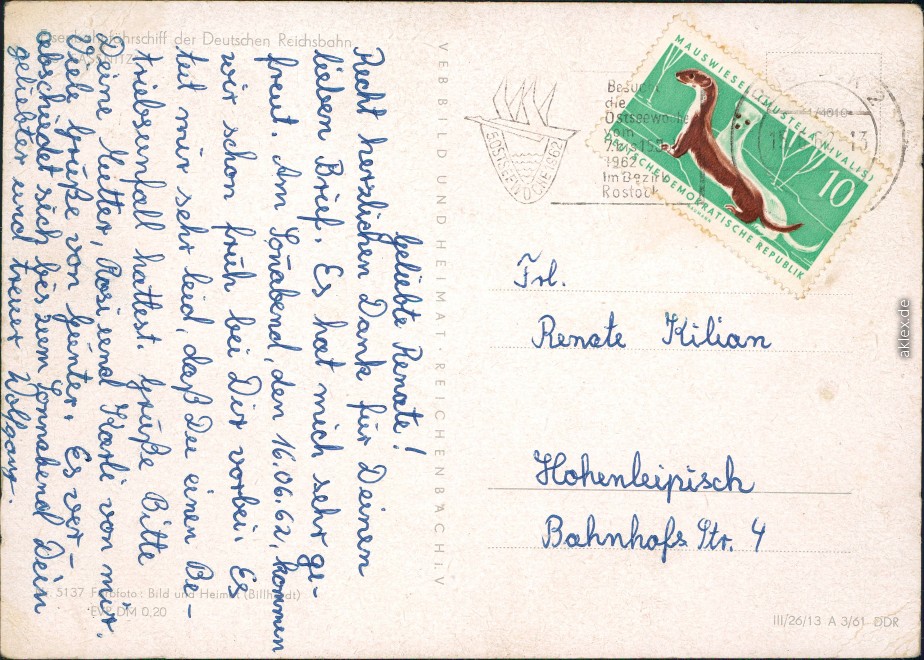 Eisenbahnfährschiff der Deutschen Reichsbahn
SASSNITZ
Geliebte Renate!
Recht herzlichen Dank für Deinen
lieben Brief. Es hat mich sehr ge-
freut. Am Sonabend, den 16.06.62, kommen
wir schon früh bei Dir vorbei. Es
tut mir sehr leid, daß Du einen Be-
triebsunfall hattest. Grüße Bitte
Deine Mutter, Rosi und Karli von mir.
Viele Grüße von Günter. Es ver-
abschiedet sich bis zum Sonnabend Dein
geliebter und treuer Wolfgang.
5137 Farbfoto: Bild und Heimat (Billhardt)
EVP DM 0,20
VEB BILD UND HEIMAT · REICHENBACH i.V
5. OSTSEEWOCHE 1962
Besucht
die
Ostseewoche
vom
1962
im Bezirk
Rostock
MAUSWIESEL (MUSTELA NIVALIS)
10
DEUTSCHE DEMOKRATISCHE REPUBLIK
Frl.
Renate Kilian
Hohenleipisch
Bahnhofs Str. 4
III/26/13 A 3/61 DDR
aklex.de